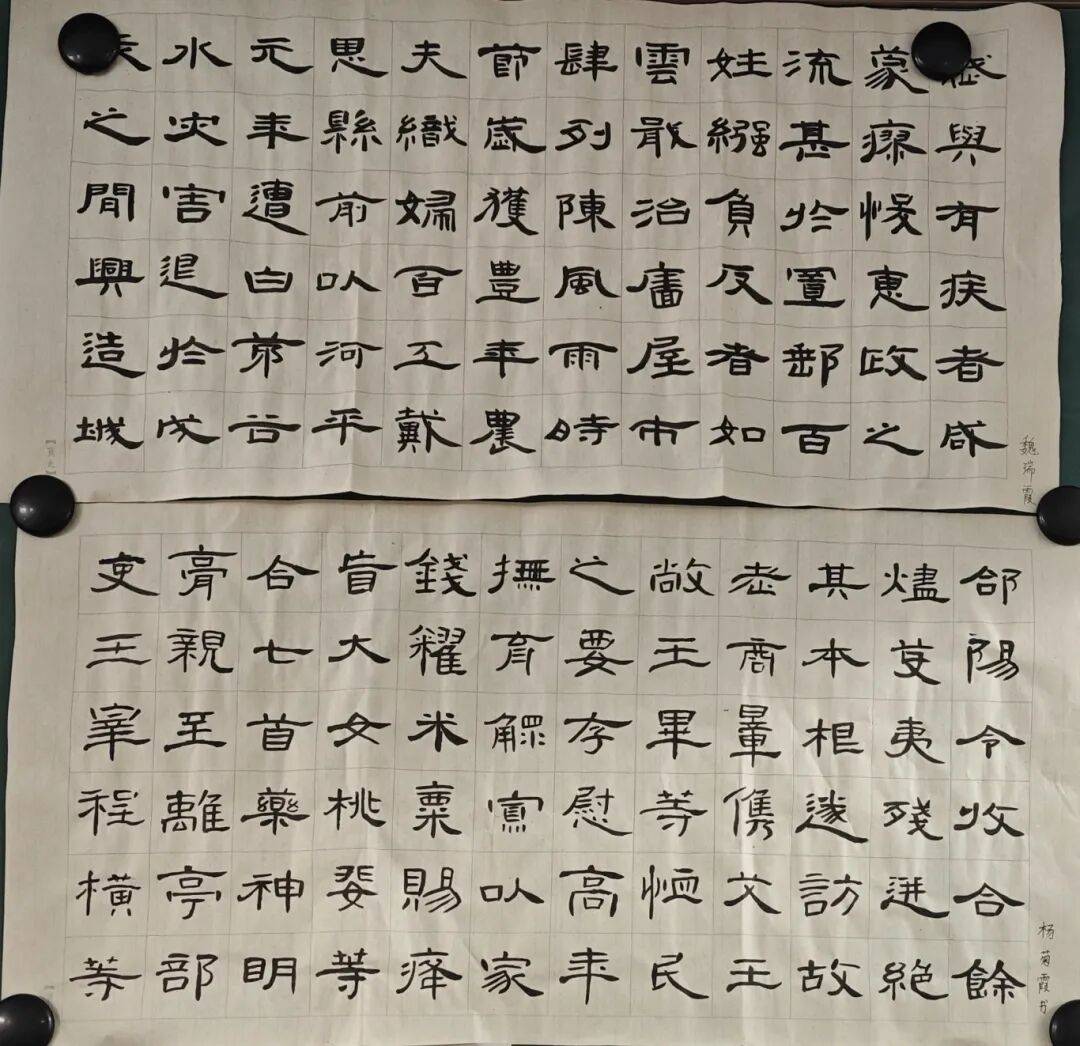 與有疾者咸
蒙瘳悛惠政之
流甚於置郵百
姓繦負反者如
雲戢治廧屋市
肆列陳風雨時
節歲獲豐年農
夫織婦百工戴
恩縣前以河平
元年遭白茅谷
水災害退於戊
之間興造城
魏瑞霞
郃陽令收合餘
燼芟夷殘迸絕
其本根遂訪故
老商量儁艾王
敞王畢等恤民
之要存慰高年
撫育鰥寡以家
錢糴米粟賜瘽
盲大女桃婓等
合七首藥神明
膏親至離亭部
吏王宰程橫等
杨菊霞书